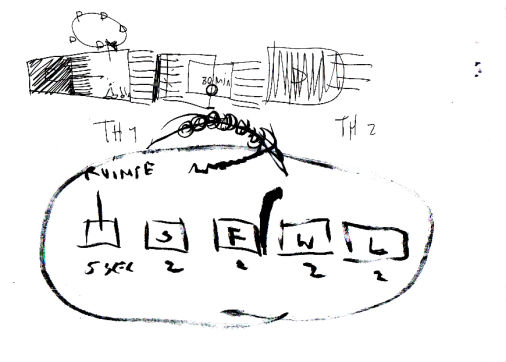 30 MIN
TH 1
TH 2
RUINSE
S F W L
5 SEC 2 2 2 2